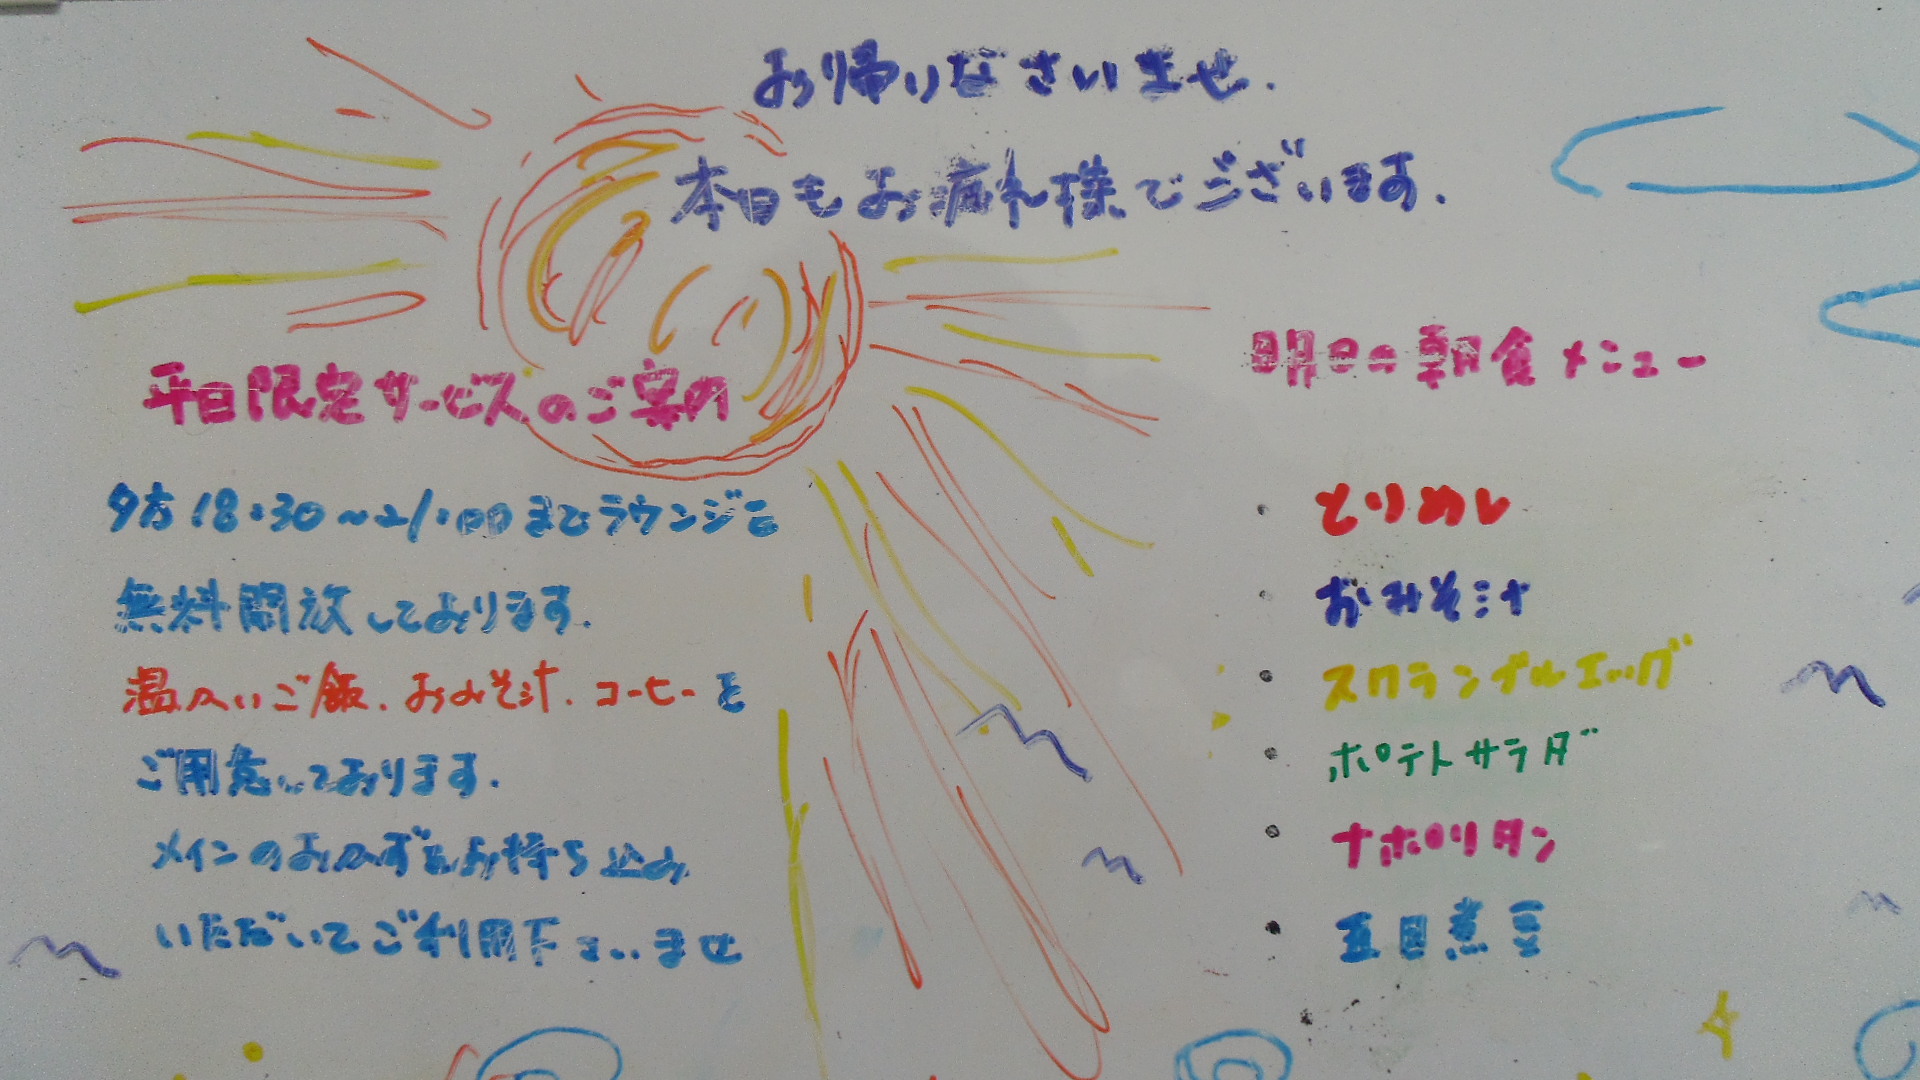 お帰りなさいませ.
本日もお疲れ様でございます.
平日限定サービスのご案内
夕方18:30〜21:00までラウンジを
無料開放しております.
温かいご飯.おみそ汁.コーヒーを
ご用意しております.
メインのおかずをお持ち込み
いただいてご利用下さいませ
明日の朝食メニュー
・とりめし
・おみそ汁
・スクランブルエッグ
・ポテトサラダ
・ナポリタン
・五目煮豆